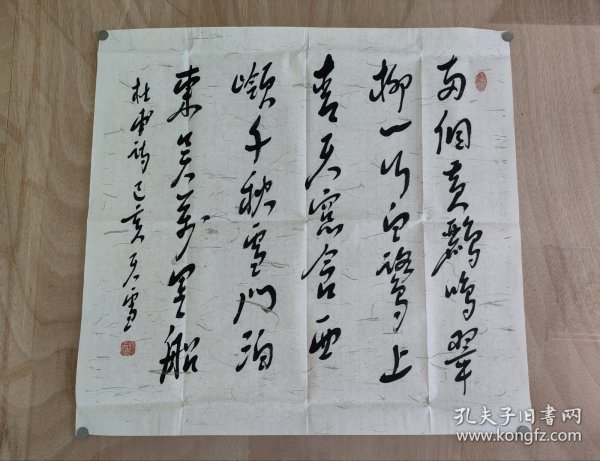 两個黄鸝鳴翠
柳一行白鷺上
青天窓含西
嶺千秋雪门泊
東吴万里船
杜甫诗己亥天雪
孔夫子旧书网
www.kongfz.com